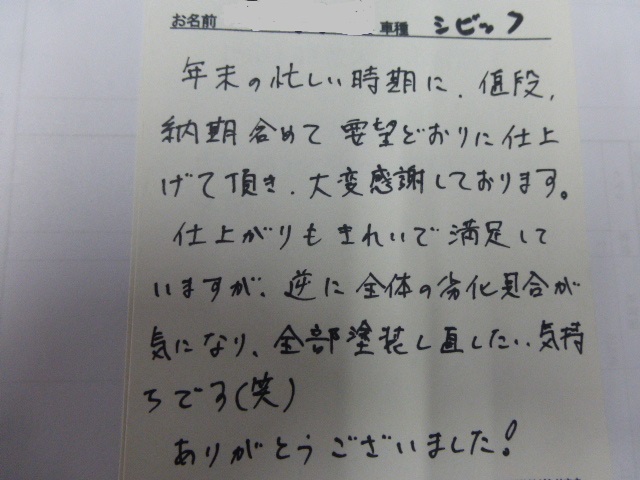 お名前 車種 シビック
年末の忙しい時期に、値段、
納期含めて要望どおりに仕上
げて頂き、大変感謝しております。
仕上がりもきれいで満足して
いますが、逆に全体の劣化具合が
気になり、全部塗装し直したい気持
ちです(笑)
ありがとうございました!